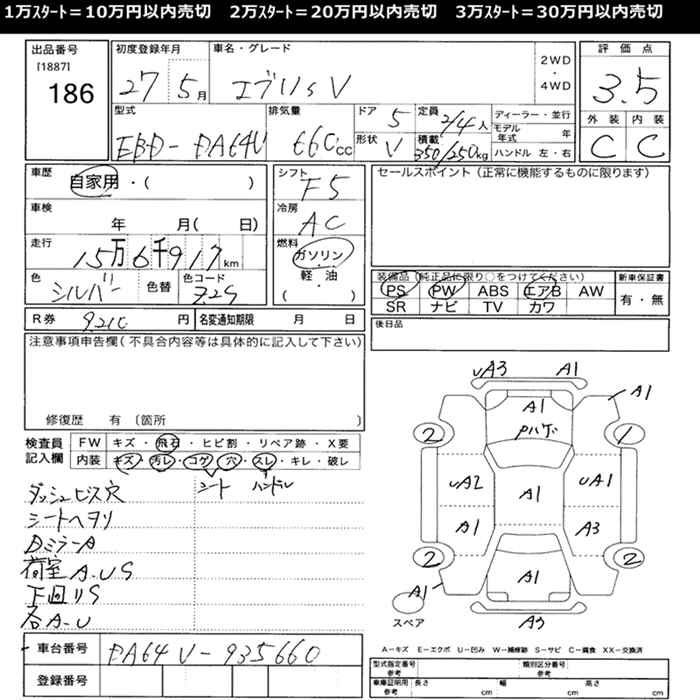 1万ｽﾀｰﾄ＝10万円以内売切　2万ｽﾀｰﾄ＝20万円以内売切　3万ｽﾀｰﾄ＝30万円以内売切
出品番号
[1887]
186
初度登録年月
27 5月
車名・グレード
エブリィV
2WD
・
4WD
評価点
3.5
外装 内装
C C
型式
EBD-DA64V
排気量
660cc
ドア 5
形状 V
定員 2/4人
積載 350/250kg
ディーラー・並行
モデル年式 年
ハンドル 左・右
車歴
自家用・( )
車検
年 月( 日)
走行
15万6千917km
色 シルバー
色替
色コード Z2S
シフト
F5
冷房
AC
燃料
ガソリン
軽・油
( )
セールスポイント(正常に機能するものに限ります)
装備品(純正品に限り○をつけてください)
PS PW ABS エアB AW
SR ナビ TV カワ
新車保証書
有・無
R券 9210 円
名変通知期限 月 日
後日品
注意事項申告欄(不具合内容等は具体的に記入して下さい)
修復歴 有〔箇所 〕
検査員記入欄
FW キズ・飛石・ヒビ割・リペア跡・X要
内装 キズ・汚レ・コゲ・穴・スレ・キレ・破レ
シート ハンドル
ダッシュビス穴
シートヘタリ
DミラーA
荷室A.US
下回リS
各A-U
車台番号 DA64V-935660
登録番号
uA3 A1
A1
A1
Pハゲ
2 1
uA2 A1 uA1
A1 A3
2 2
A1 A1
スペア
A3
A－キズ E－エクボ U－凹み W－補修跡 S－サビ C－腐食 XX－交換済
型式指定番号 参考
類別区分番号 参考
車庫証明用 参考 長さ cm 幅 cm 高さ cm